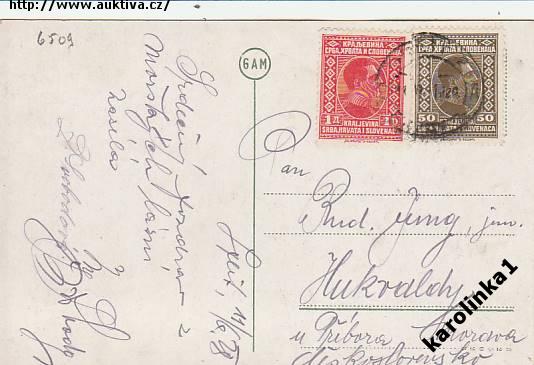 http://www.auktiva.cz/
6509
6AM
КРАЉЕВИНА
СРБА, ХРВАТА И СЛОВЕНАЦА
1 Д 1 D
KRALJEVINA
SRBA, HRVATA I SLOVENACA
КРАЉЕВИНА
СРБА, ХРВАТА И СЛОВЕНАЦА
50 50
KRALJEVINA
SRBA, HRVATA I SLOVENACA
Srdečný pozdrav z
Mořských lázní
zasílá
Split,
Pan
Rud. Jung, jun.
Hukvaldy
u Příbora Morava
Československo
karolinka1